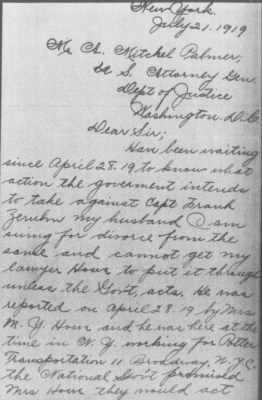 New York.
July 21. 1919
Mr A. Mitchel Palmer;
U S. Attorney Gen.
Dept of Justice
Washington. D.C.
Dear Sir;
Han been waiting
since April 28. 19 to know what
action the goverment intends
to take against Capt Frank
my husband I am
suing for divorce from the
same and cannot get my
lawyer Hour to put it through
unless the Gov't, acts. He was
reported on April 28. 19 by Mrs
M. Y. Hour and he was here at the
time in N. Y. working for Potter
Transportation 11 Brodway. N.Y.C.
the National Gov't promised
Mrs Hour they would act